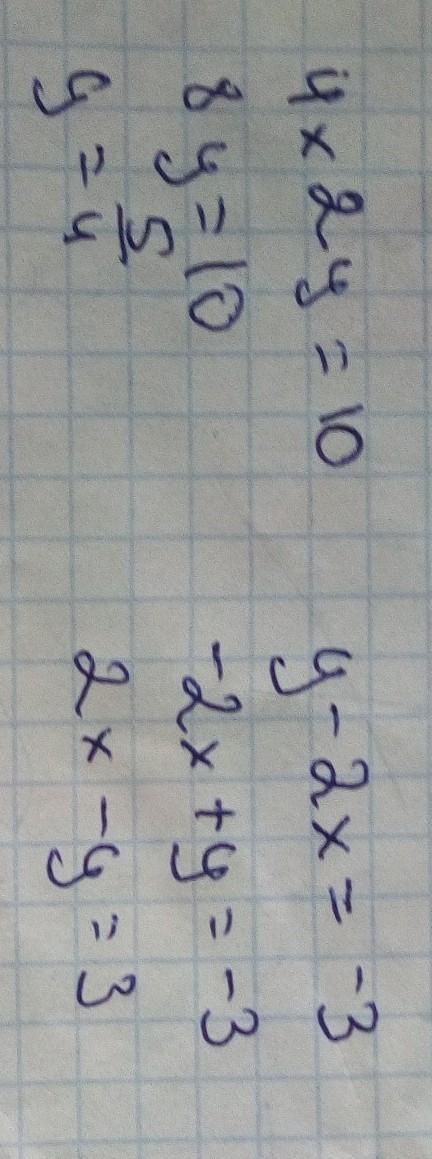 4 x 2y = 10
8y = 10
y = 5/4
y - 2x = -3
-2x + y = -3
2x - y = 3